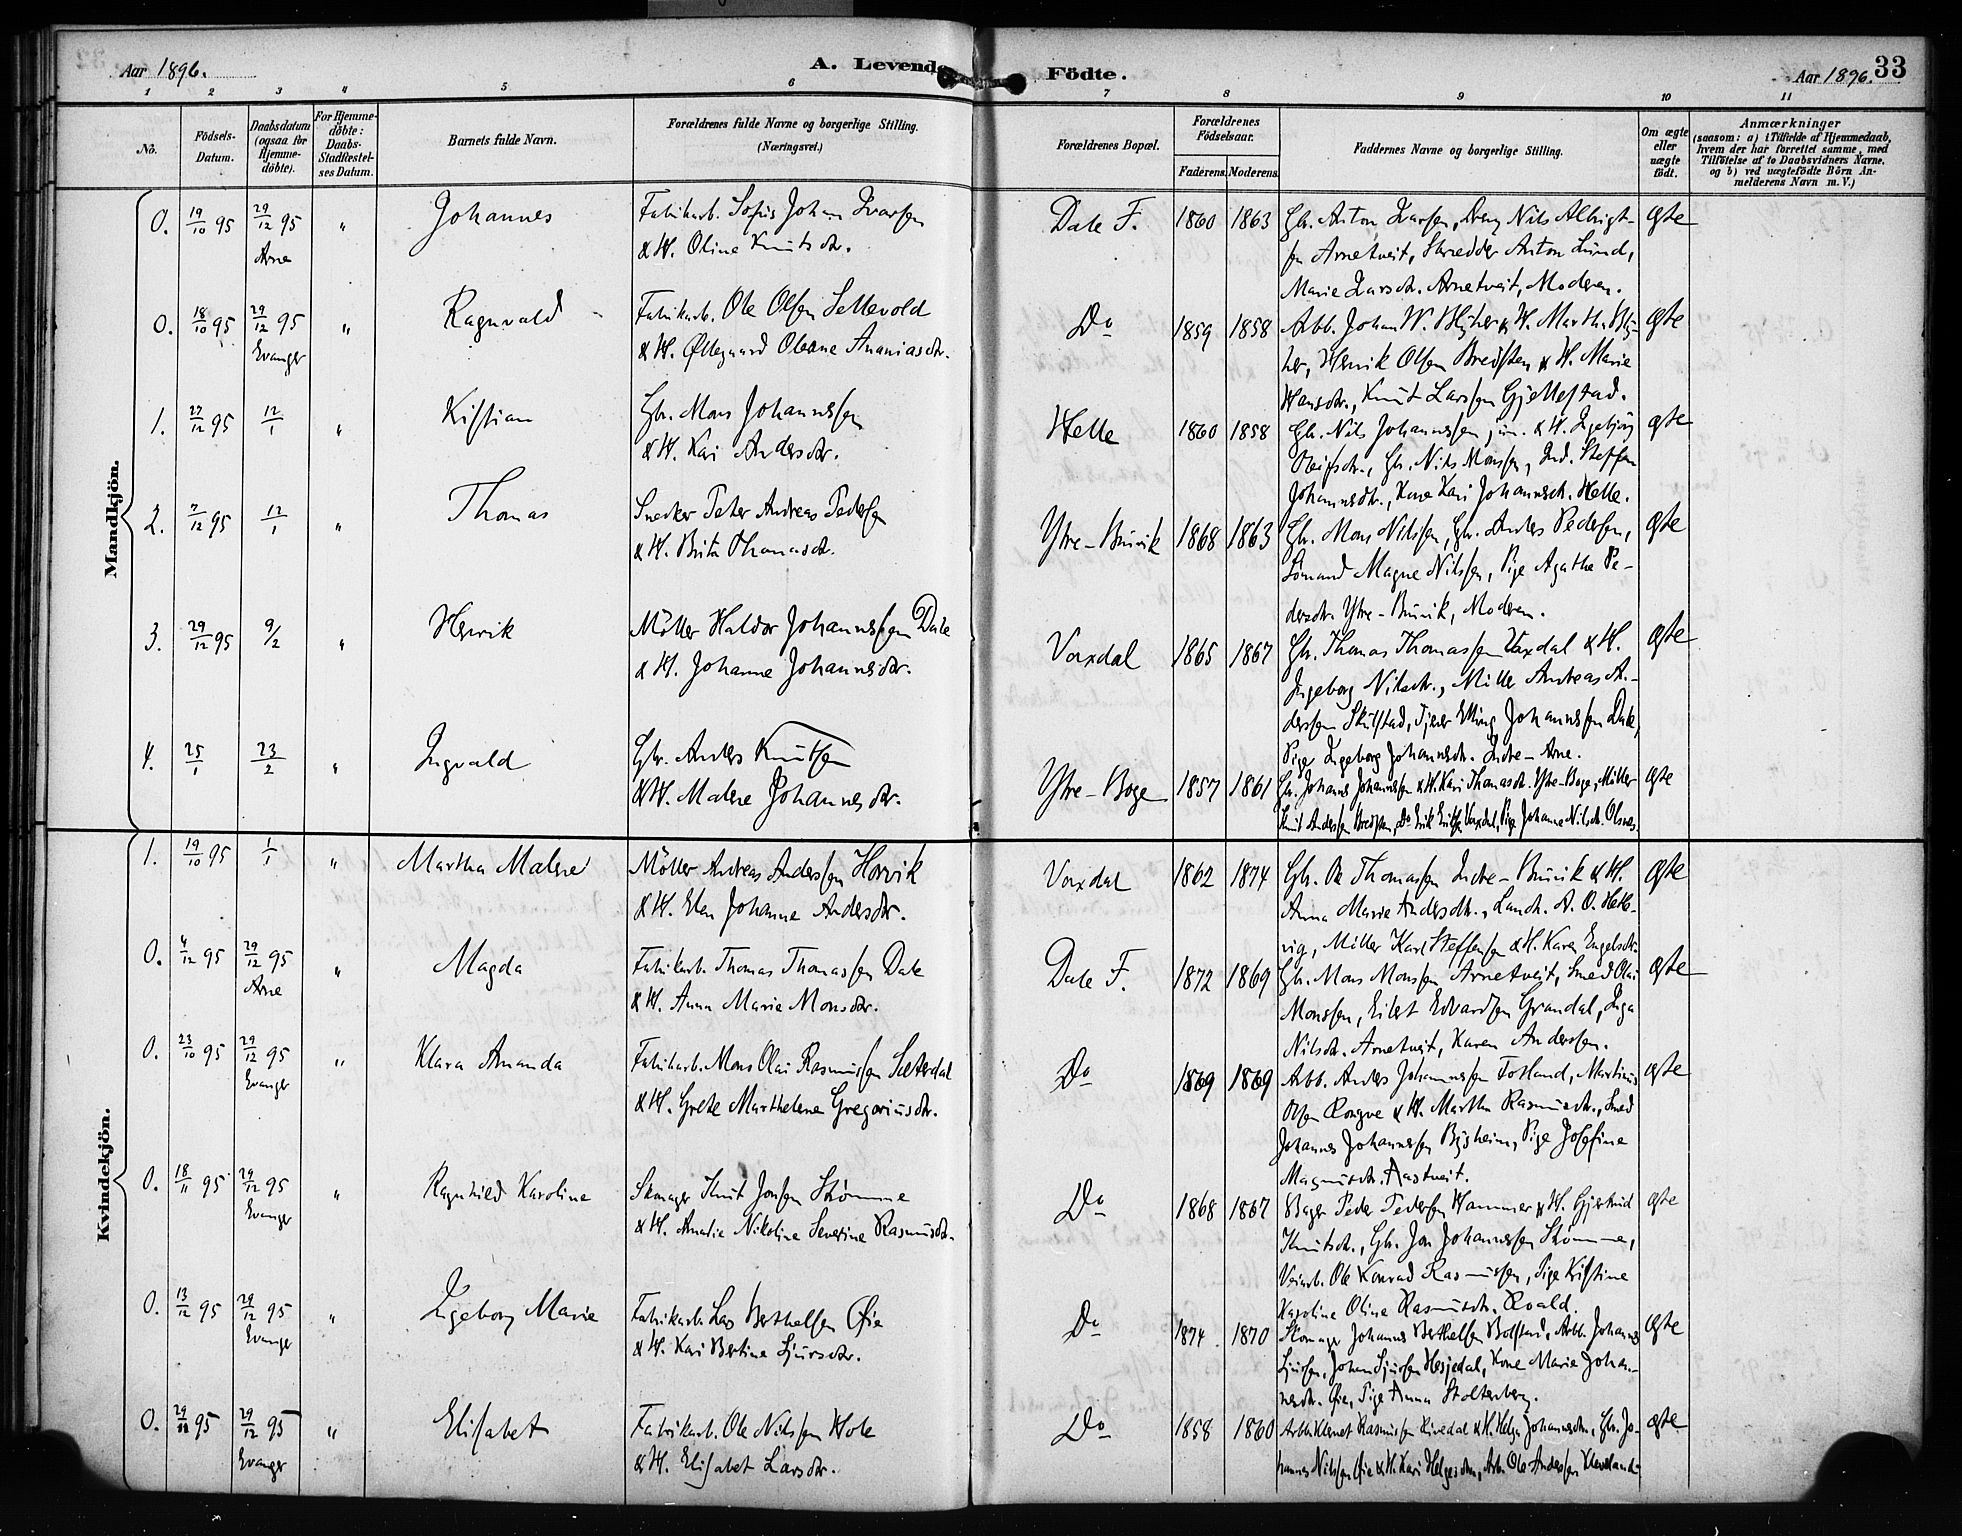 Aar 1896.
A. Levende Födte.
Aar 1896. 33
1 2 3 4 5 6 7 8 9 10 11
No.
Födsels-Datum.
Daabsdatum (ogsaa for Hjemme-döbte).
For Hjemme-döbte: Daabs-Stadfæstel-ses Datum.
Barnets fulde Navn.
Forældrenes fulde Navne og borgerlige Stilling. (Næringsvei.)
Forældrenes Bopæl.
Forældrenes Födselsaar.
Faderens. Moderens.
Faddernes Navne og borgerlige Stilling.
Om ægte eller uægte födt.
Anmærkninger
(saasom: a) i Tilfælde af Hjemmedaab, hvem der har forrettet samme, med Tilföielse af to Daabsvidners Navne, og b) ved uægtefödte Börn An-melderens Navn m. V.)
Mandkjön.
0. 19/10 95 29/12 95 Arne " Johannes
Fabrikarb. Sofus Johan Ivarsen
& H. Oline Knutsdtr.
Dale F. 1860 1863
Gbr. Anton Larsen, Dreng Nils Albrigt-
sen Arnetveit, Skrædder Anton Lund,
Marie Larsdtr. Arnetveit, Moderen.
ægte
0. 18/10 95 29/12 95 Evanger " Ragnvald
Fabrikarb. Ole Olsen Sellevold
& H. Øllegaard Oleane Ananiasdtr.
Do 1859 1858
Arb. Johan W. & H. Martha
Henrik Olsen Bredsten & H. Marie
Hansdtr., Knut Larsen Gjellestad.
ægte
1. 27/12 95 12/1 " Kristian
Gbr. Mons Johannessen
& H. Kari Andersdtr.
Helle 1860 1858
Gbr. Nils Johannessen jun. & H. Ingebjörg
Gbr. Nils Monsen, Ind. Steffen
Johannesdtr., Kone Kari Johannesdtr. Helle.
ægte
2. 7/12 95 12/1 " Thomas
Snedker Peter Andreas Pedersen
& H. Brita Thomasdtr.
Ytre-Bruvik 1868 1863
Gbr. Mons Nilssen, Gbr. Anders Pedersen,
Sömand Magne Nilssen, Pige Agathe Pe-
dersdtr. Ytre-Bruvik, Moderen.
ægte
3. 29/12 95 9/2 " Henrik
Möller Haldor Johannessen Dale
& H. Johanne Johannesdtr.
Vaxdal 1865 1867
Gbr. Thomas Thomassen Vaxdal & H.
Ingeborg Nilsdtr., Möller Andreas An-
dersen Skulstad, Tjener Elling Johannessen Dale,
Pige Ingeborg Johannesdtr. Indre-Arne.
ægte
4. 25/1 23/2 " Ingvald
Gbr. Anders Knutsen
& H. Malene Johannesdtr.
Ytre-Boge 1857 1861
Gbr. Johannes Johannessen & H. Kari Thomasdtr. Ytre-Boge, Möller
Knut Andersen Bredsten, Do Erik Vaxdal, Pige Johanne Nilsdtr. Olsnes.
ægte
Kvindekjön.
1. 19/10 95 1/1 " Martha Malene
Möller Andreas Anderssen Horvik
& H. Elen Johanne Andersdtr.
Vaxdal 1862 1874
Gbr. Ole Thomassen Indre-Bruvik & H.
Anna Marie Andersdtr., Landh. A. O. Helle-
vig, Möller Karl Steffensen & H. Karen Engelsdtr.
ægte
0. 4/12 95 29/12 95 Arne " Magda
Fabrikarb. Thomas Thomassen Dale
& H. Anna Marie Monsdtr.
Dale F. 1872 1869
Gbr. Mons Monssen Arnetveit, Smed Olai
Monssen, Eilert Edvardsen Grandal, Inga
Nilsdtr. Arnetveit, Karen Anderssen.
ægte
0. 23/10 95 29/12 95 Evanger " Klara Amanda
Fabrikarb. Mons Olai Rasmussen Sætterdal
& H. Grete Marthelene Gregoriusdtr.
Do 1869 1869
Arb. Anders Johannessen Fosland, Martinus
Olsen Rongve & H. Martha Rasmusdtr., Smed
Johannes Johannessen Pige Josefine
Magnusdtr. Aastveit.
ægte
0. 18/11 95 29/12 95 Evanger " Ragnhild Karoline
Skomager Knut Jonsen Skömme
& H. Amalie Nikoline Severine Rasmusdtr.
Do 1868 1867
Bager Peder Pedersen Hammer & H. Gjertrud
Knutsdtr., Gbr. Jon Johannessen Skömme,
Veiarb. Ole Konrad Rasmussen, Pige Kristine
Karoline Olina Rasmusdtr. Roald.
ægte
0. 13/12 95 29/12 95 Evanger " Ingeborg Marie
Fabrikarb. Lars Berthelsen Øie
& H. Kari Bertine Sjursdtr.
Do 1874 1870
Skomager Johannes Berthelsen Bolstad, Arb. Johannes
Sjursen, Johan Sjursen Hesjedal, Kone Marie Johan-
nesdtr. Øie, Pige Anna Stoltenberg.
ægte
0. 29/11 95 29/12 95 Evanger " Elisabet
Fabrikarb. Ole Nilssen Hole
& H. Elisabet Larsdtr.
Do 1858 1860
Arb. Klemet Rasmussen & H. Helga Johannesdtr., Gbr. Jo-
hannes Nilssen Øie & H. Kari Helgesdtr., Arb. Ole Anderssen Kleveland.
ægte